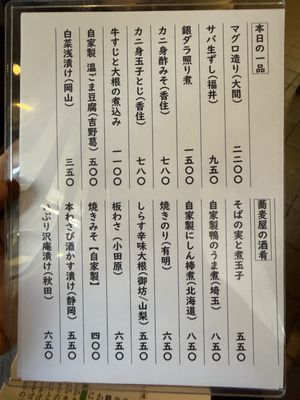 本日の一品
マグロ造り(大間) 二二〇〇
サバ生ずし(福井) 九五〇
銀ダラ照り煮 一五〇〇
カニ身酢みそ(香住) 七八〇
カニ身玉子とじ(香住) 七八〇
牛すじと大根の煮込み 一一〇〇
自家製 温ごま豆腐(吉野葛) 五〇〇
白菜浅漬け(岡山) 三五〇
蕎麦屋の酒肴
そばの実と煮玉子 五五〇
自家製鴨のうま煮(埼玉) 八五〇
自家製にしん棒煮(北海道) 八五〇
焼きのり(有明) 六五〇
しらす辛味大根(御坊/山梨) 五五〇
板わさ(小田原) 六五〇
焼きみそ【自家製】 四〇〇
本わさび酒かす漬け(静岡) 五五〇
いぶり沢庵漬け(秋田) 六五〇